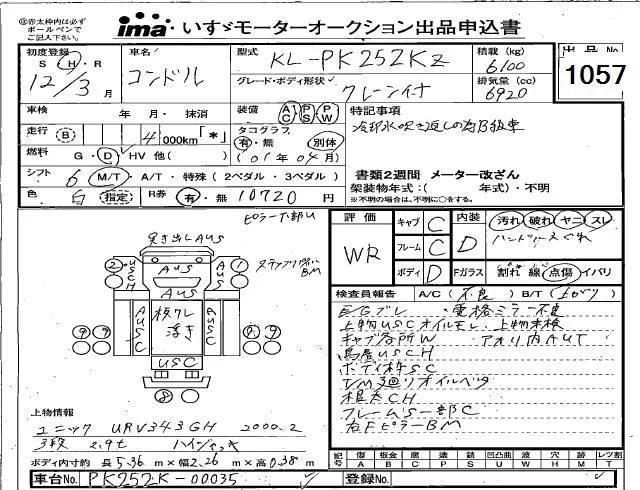 ㊟赤太枠内は必ず
ボールペンで
ご記入下さい。
ima いすゞモーターオークション出品申込書
初度登録
S H・R
12/3月
車名
コンドル
型式
KL-PK252KZ
グレード・ボディ形状
クレーン付
積載 (kg)
6100
排気量 (cc)
6920
出品No
1057
車検 年 月・ 抹消
装備 AC PS PW
特記事項
冷却水吹き返しの為B級車
走行 (B) 4 000km「*」
タコグラフ
有・無 別体
(01年04月)
燃料 G・D HV 他( )
書類2週間 メーター改ざん
シフト 6 M/T・A/T・特殊(2ペダル・3ペダル)
架装物年式:( 年式)・不明
※不明の場合は、不明に○をする。
色 白 指定 R券 有・無 10720円
ピラー下部U
突き出しAUS
評価
WR
キャブ C
フレーム C
ボディ D
内装 D
汚れ 破れ ヤニ スレ
Fガラス 割れ 線 点傷 イバリ
2 USCH
AUS
AUS
1 USC
ステップ
BM
AUSC
板ワレ
浮き
AUSC
USC
9 9
8
検査員報告 A/C(不良) B/T(上がり)
E/Gブレ 電格ミラー不良
上物USCオイルモレ 上物未検
キャブ台所W アオリ内AUT
鳥居USCH
ボディ枠SC
T/M廻りオイルベタ
根太CH
フレームS一部C
右FピラーBM
上物情報
ユニック URV343GH 2000.2
3段 2.9t ハイジャッキ
ボディ内寸約 長5.36m×幅2.26m×高0.38m
記号 傷A 板金B 腐C 塗P 錆S 凹凸曲U 波W 穴H 跡M レツ割T
車台No. PK252K-00035
登録No.